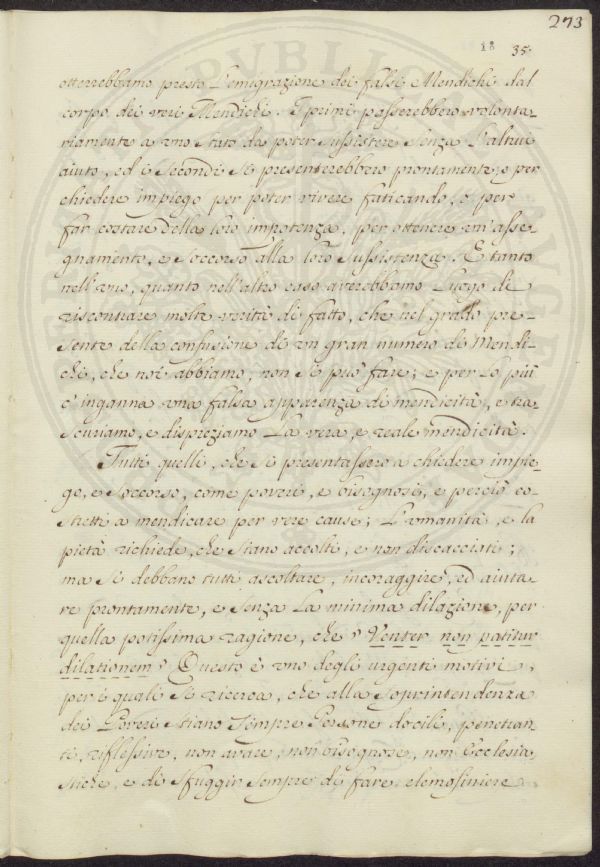 273
18 35.
otterrebbamo presto L'emigrazione dei falsi Mendichi dal
corpo dei veri Mendichi. I primi passerebbero volonta-
riamente a uno stato da poter sussistere senza L'altrui
aiuto, ed i secondi si presenterebbero prontamente, o per
chiedere impiego per poter vivere faticando, o per
far costare della loro impotenza, per ottenere un'asse-
gnamento, e soccorso alla loro sussistenza. E tanto
nell'uno, quanto nell'altro caso averebbamo Luogo di
riscontrare molte verità di fatto, che nel grado pre-
sente della confusione di un gran numero di Mendi-
chi, che noi abbiamo, non si può fare; e per lo più
c'inganna una falsa apparenza di mendicità, e tra-
scuriamo, e dispreziamo La vera, e reale mendicità.
Tutti quelli, che si presentassero a chiedere impie-
go, e soccorso, come poveri, e bisognosi, e perciò co-
stretti a mendicare per vere cause; L'umanità, e la
pietà richiede, che siano accolti, e non discacciati;
ma si debbano tutti ascoltare, incoraggire, ed aiuta-
re prontamente, e senza La minima dilazione, per
quella potissima ragione, che " Venter non patitur
dilationem " Questo è uno degli urgenti motivi,
per i quali si ricerca, che alla soprintendenza
dei Poveri stiano sempre Persone docili, penetran-
ti, riflessive, non avare, non bisognose, non Ecclesia-
stiche, e di sfuggir sempre di fare elemosiniere